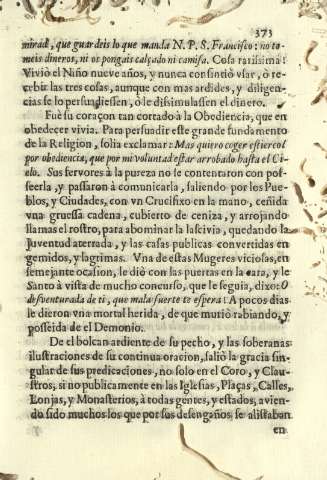 373
mirad, que guardeis lo que manda N. P. S. Francisco: no to-
meis dineros, ni os pongais calçado ni camisa. Cosa rarissima!
Vivió el Niño nueve años, y nunca consintió vsar, ò re-
cebir las tres cosas, aunque con mas ardides, y diligen-
cias se lo persuadiessen, ò le dissimulassen el dinero.
Fuè su coraçon tan cortado à la Obediencia, que en
obedecer vivia. Para persuadir este grande fundamento
de la Religion, solia exclamar: Mas quiero coger estiercol
por obediencia, que por mi voluntad estar arrobado hasta el Cie-
lo. Sus fervores à la pureza no se contentaron con pos-
seerla, y passaron à comunicarla, saliendo por los Pue-
blos, y Ciudades, con vn Crucifixo en la mano, ceñida
vna gruessa cadena, cubierto de ceniza, y arrojando
llamas el rostro, para abominar la lascivia, quedando la
juventud aterrada, y las casas publicas convertidas en
gemidos, y lagrimas. Vna de estas Mugeres viciosas, en
semejante ocasion, le diò con las puertas en la cara, y le
Santo à vista de mucho concurso, que le seguia, dixo: O
desventurada de ti, que mala suerte te espera! A pocos dias
le dieron vna mortal herida, de que murió rabiando, y
posseida de el Demonio.
De el bolcan ardiente de su pecho, y las soberanas
ilustraciones de su continua oracion, saliò la gracia sin-
gular de sus predicaciones, no solo en el Coro, y Clau-
stros, si no publicamente en las Iglesias, Plaças, Calles,
Lonjas, y Monasterios, à todas gentes, y estados, avien-
do sido muchos los que por sus desengaños se alistaban
en